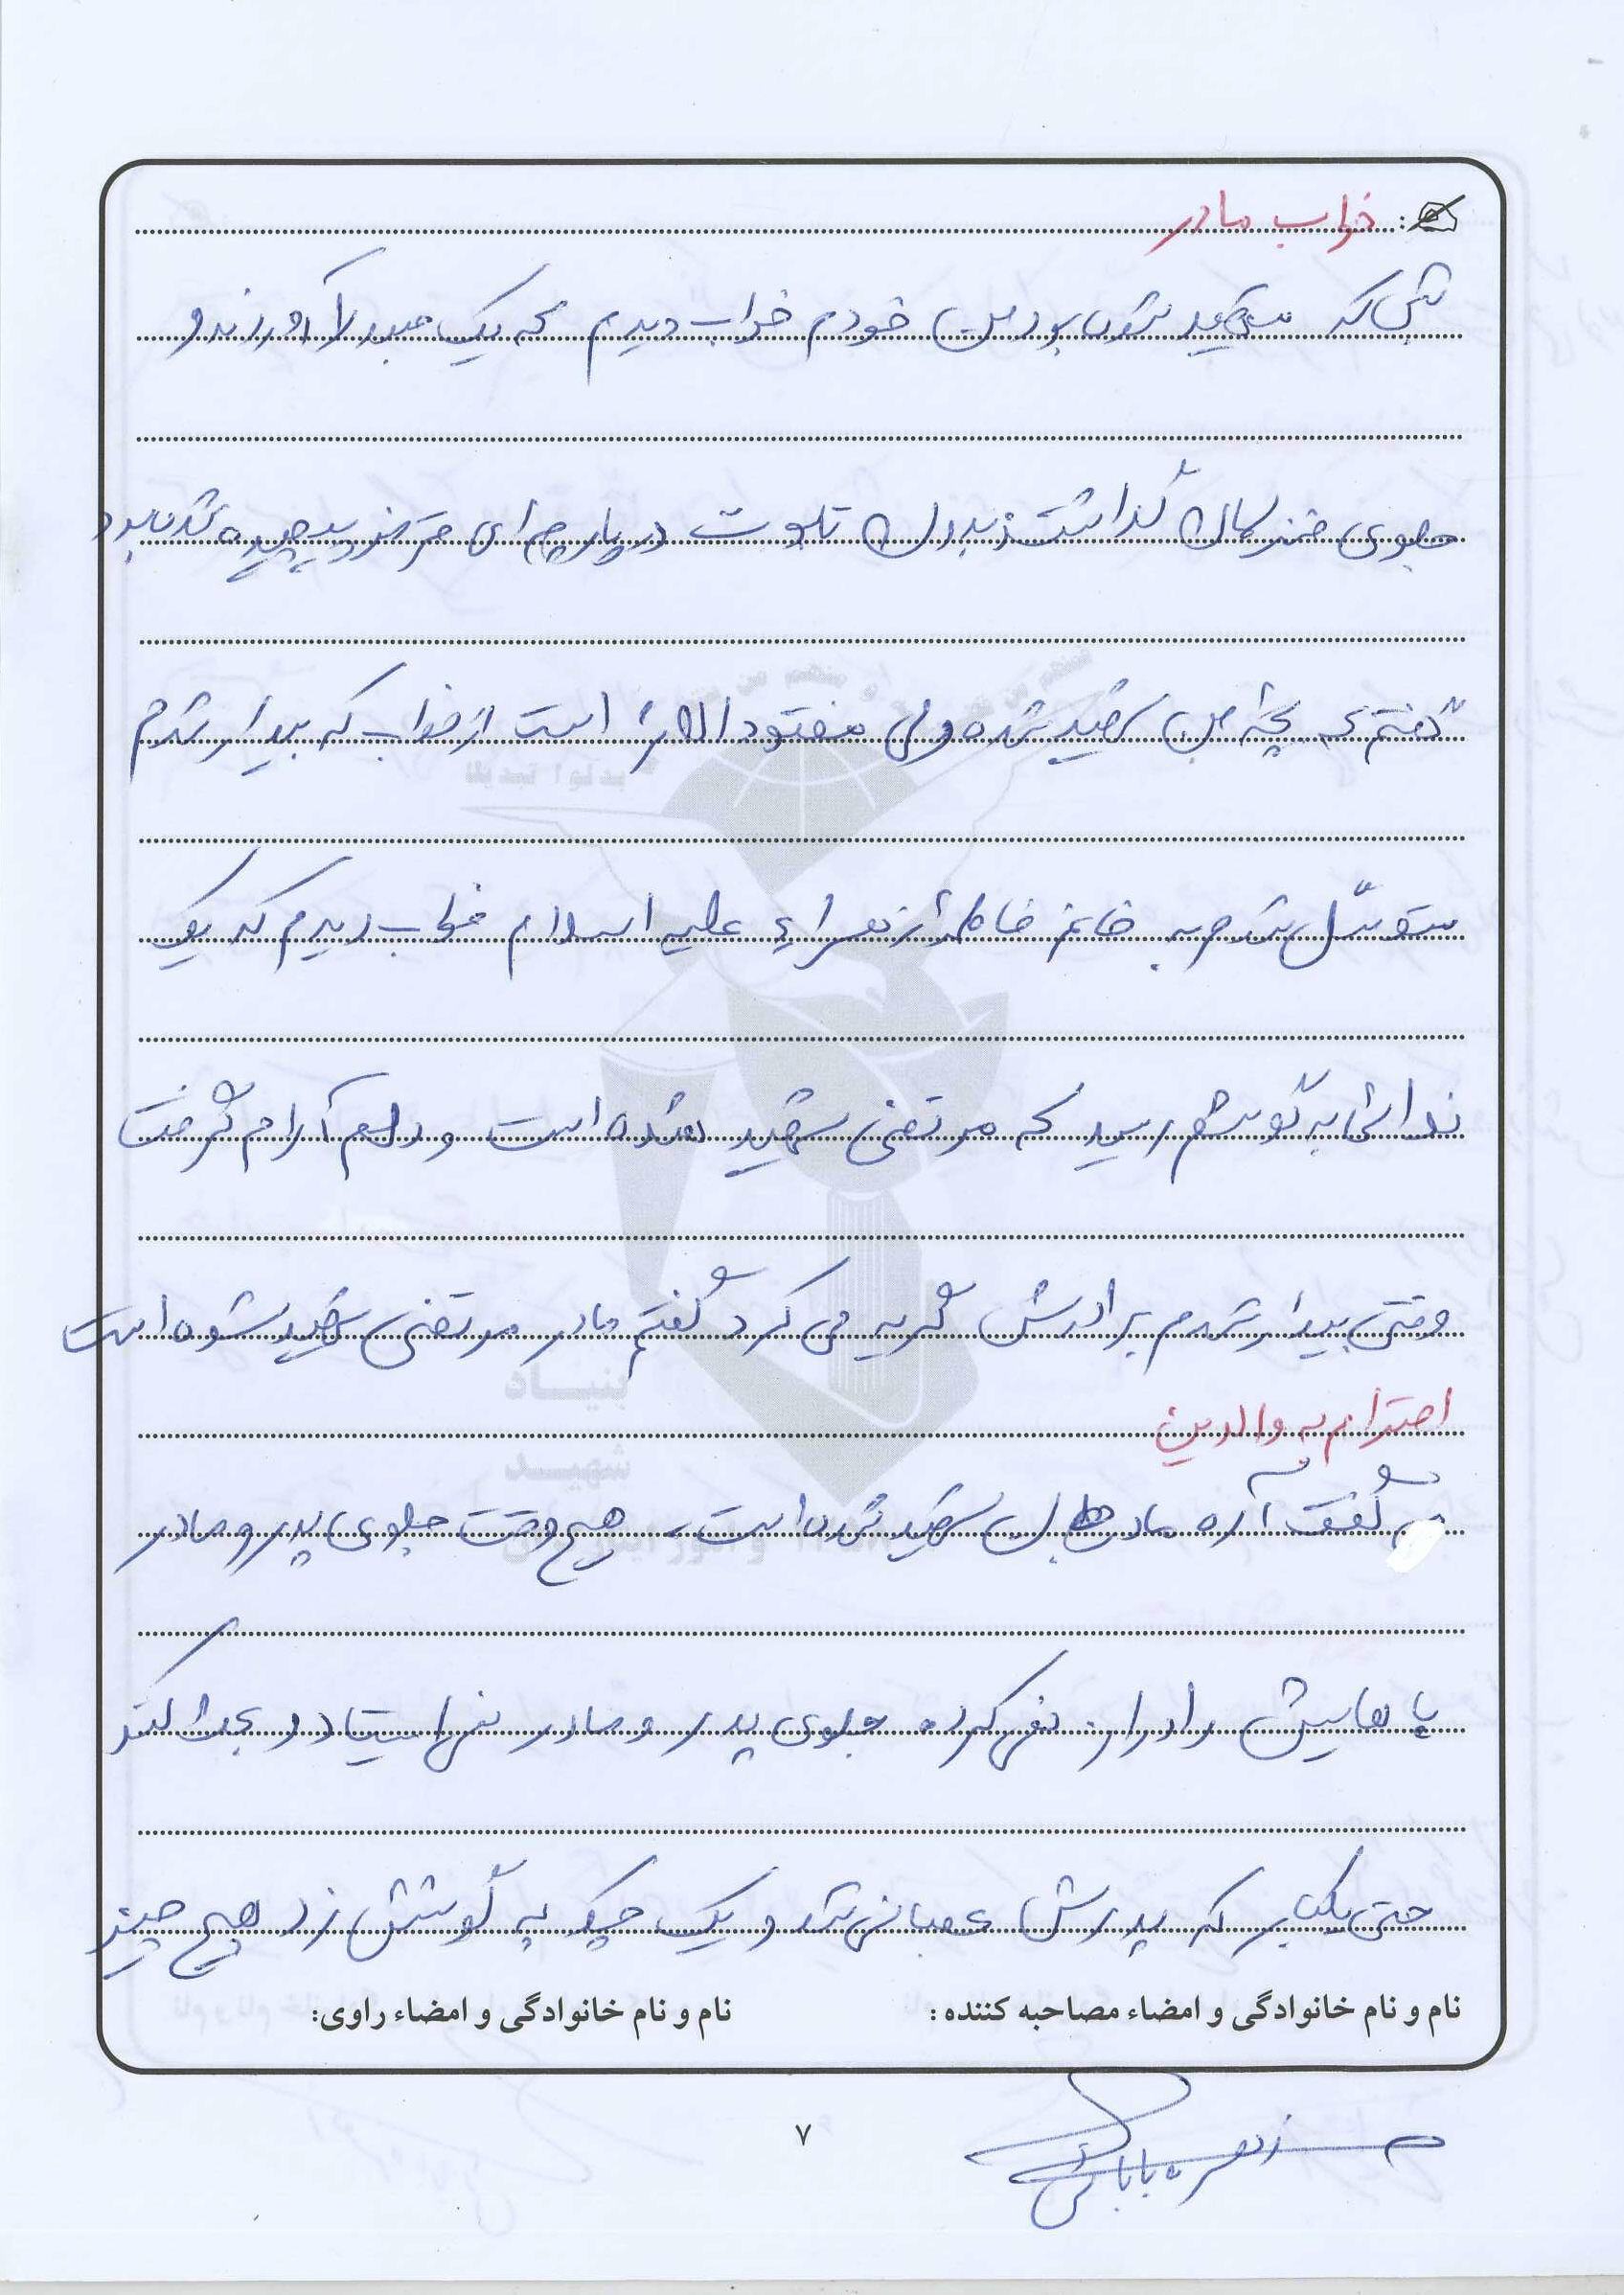 خواب مادر
شبی که شهید شده بود من خودم خواب دیدم که یک جسد را آوردند و
جلوی گذاشتند بدون تابوت در پارچه ای قرمز پیچیده شده بود
گفتم که بچه من شهید شده ولی مفقود الاثر است از خواب که بیدار شدم
متوسّل شدم به خانم فاطمه زهراء علیه اسلام خواب دیدم که یک
ندائی به گوشم رسید که مرتضی شهید شده است و دلم آرام گرفت
وقتی بیدار شدم برادرش گریه می کرد گفتم مادر مرتضی شهید شده است
احترام به والدین
گفت آره مادر شهید شده است هیچ وقت جلوی پدر و مادر
پاهایش را دراز نمی کرد جلوی پدر و مادر نمی ایستاد و بحث کند
حتی یکبار که پدرش عصبانی شد و یک چک به گوشش زد هیچ چیز
نام و نام خانوادگی و امضاء مصاحبه کننده : نام و نام خانوادگی و امضاء راوی:
۷
بنیاد
شهید